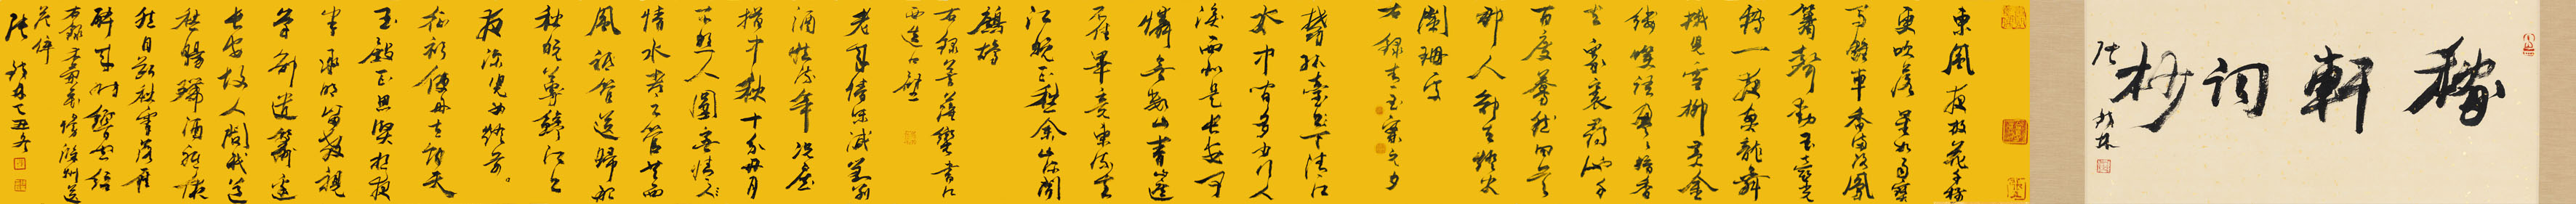 稼軒詞抄
張
東風夜放花千樹
更吹落星如雨寶
馬雕車香滿路鳳
簫聲動玉壺光
轉一夜魚龍舞
蛾兒雪柳黃金
縷笑語盈盈暗香
去衆裏尋他千
百度驀然回首
那人卻在燈火
闌珊處
右錄青玉案元夕
鬱孤臺下清江
水中間多少行人
淚西北是長安可
憐無數山青山遮
不住畢竟東流去
江晚正愁余山深聞
鷓鴣
右錄菩薩蠻書江
西造口壁
老來情味減對別
酒怯流年況屈
指中秋十分好月
不照人圓無情
水都不管共西
風祗管送歸船
秋晚蓴鱸江上
夜深兒女燈前
征衫便好去朝天
玉殿正思賢想夜
半承明留教視
草卻遣籌邊
長安故人問我道
愁腸殢酒只依
然目斷秋霄落雁
醉來時響空弦
右錄木蘭花慢滁州送
范倅
張 林乙丑冬